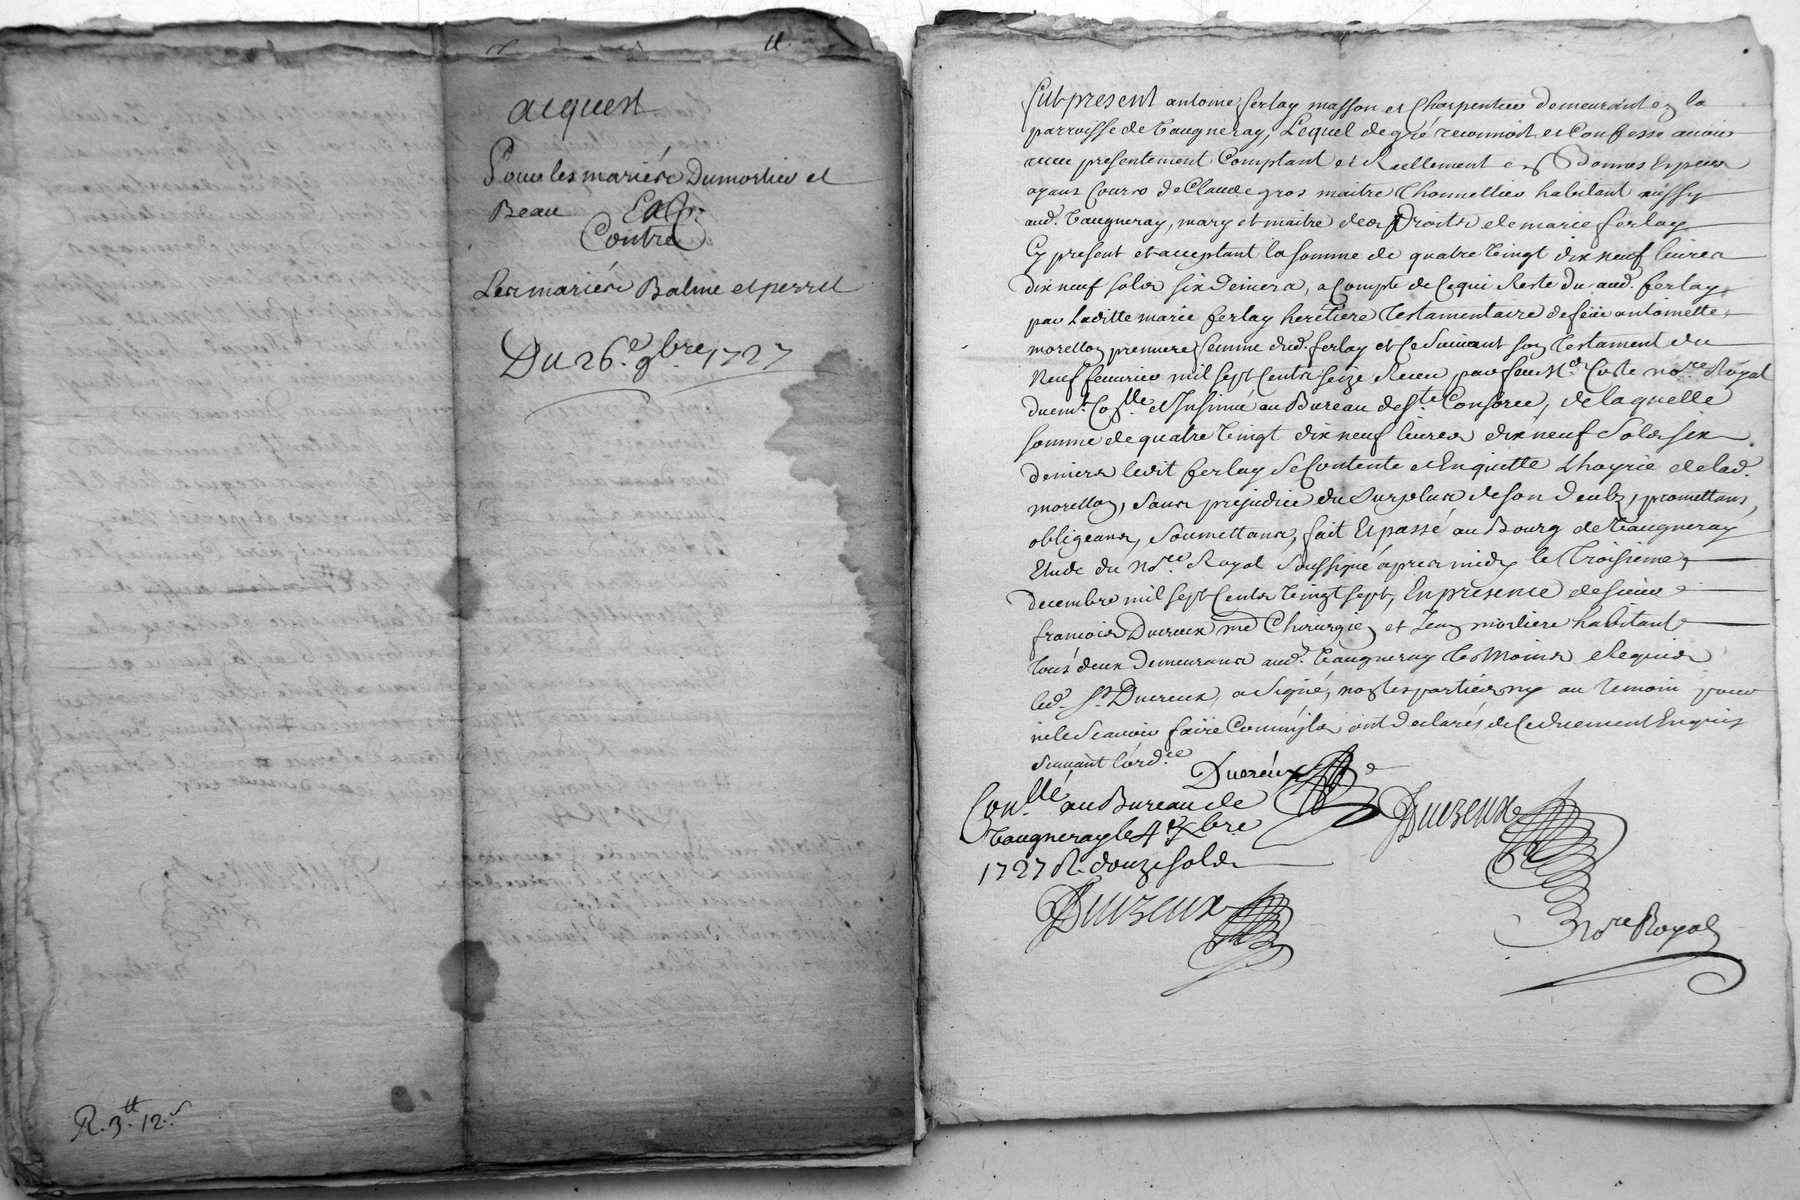 acquest
Pour les mariés Dumortier et
Beau
Contre
Les mariés Balme et perret
Du 26.e 9.bre 1727
R. 3.tt 12.s
Fut present antoine ferlay masson et Charpentier demeurant en la
parroisse de Vaugneray, Lequel de gré reconnoit et Confesse avoir
receu presentement Comptant et Reellement en Bonnes Especes
ayans Cours de Claude gros maitre Thonnellier habitant aussy
aud. Vaugneray, mary et maitre des Droits de marie ferlay
Cy present et acceptant la somme de quatre Vingt dix neuf livres
dix neuf sols six deniers, a Compte de Ce qui Reste Du aud. ferlay
par Laditte marie ferlay heretiere Testamentaire de feüe antoinette
morellon premiere femme dud. ferlay et Ce Suivant son Testament du
Neuf fevrier mil sept Cents seize Receu par feu M.e Coste no.re Royal
duem.t Con.llé et Insinué au Bureau de S.te Consorce, de laquelle
somme de quatre Vingt dix neuf livres dix neuf Sols six
deniers ledit ferlay se Contente et Enquitte Lhoyrie de lad.
morellon, Sans prejudice du Surplus de son deub, promettans,
obligeans, Soumettans, fait Et passé au Bourg de Vaugneray
Etude du No.re Royal Soussigné apres midy le Troisieme
decembre mil sept Cents Vingt sept, En presence de sieur
francois Ducreux m.e Chirurgien et Jean moriliere habitant
tous deux Demeurans aud. Vaugneray Tesmoins Requis
led. Sr. Ducreux a Signé, non les parties ny au temoin pour
ne le Scavoir faire Comm'ils ont declarés de Ce duement Enquis
Suivant l'ord.ce
Ducreux
Con.llé au Bureau de
Vaugneray le 4.e Xbre
1727 R. douze sols
Ducreux
Ducreux
no.re Royal